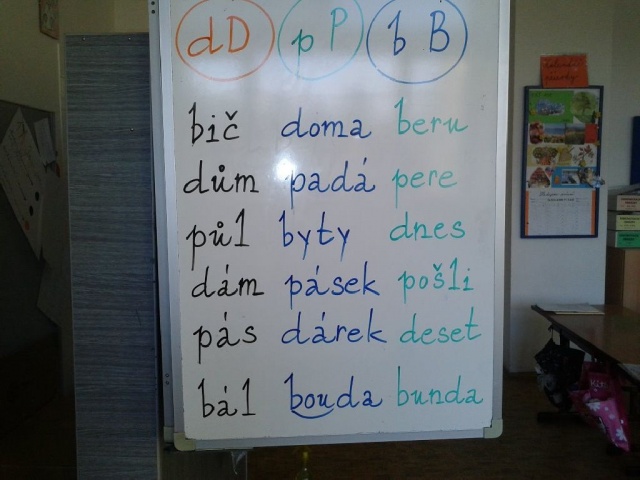 dD pP bB
bič doma beru
dům padá pere
půl byty dnes
dám pásek pošli
pás dárek deset
bál bouda bunda